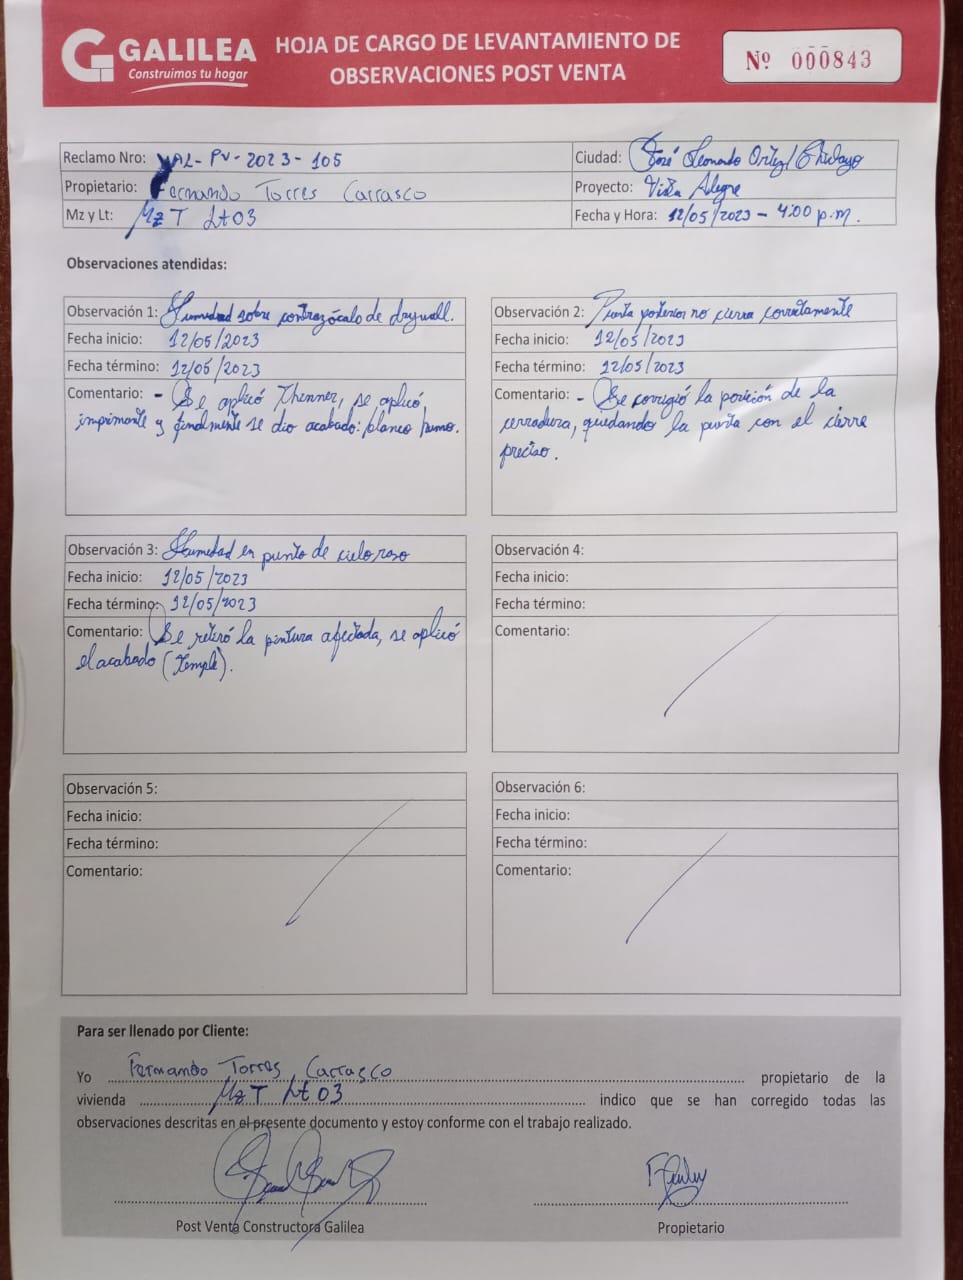 GALILEA
Construimos tu hogar
HOJA DE CARGO DE LEVANTAMIENTO DE
OBSERVACIONES POST VENTA
Nº 000843
Reclamo Nro: VAL-PV-2023-105
Ciudad: José Leonardo Ortiz/Chiclayo
Propietario: Fernando Torres Carrasco
Proyecto: Vista Alegre
Mz y Lt: Mz T Lt 03
Fecha y Hora: 12/05/2023 - 4:00 p.m.
Observaciones atendidas:
Observación 1: Humedad sobre contrazócalo de drywall.
Fecha inicio: 12/05/2023
Fecha término: 12/05/2023
Comentario: - Se aplicó Thenner, se aplicó
imprimante y finalmente se dio acabado: blanco humo.
Observación 2: Puerta posterior no cierra correctamente
Fecha inicio: 12/05/2023
Fecha término: 12/05/2023
Comentario: - Se corrigió la posición de la
cerradura, quedando la puerta con el cierre
preciso.
Observación 3: Humedad en punto de cielo raso
Fecha inicio: 12/05/2023
Fecha término: 12/05/2023
Comentario: Se retiró la pintura afectada, se aplicó
el acabado (temple).
Observación 4:
Fecha inicio:
Fecha término:
Comentario:
Observación 5:
Fecha inicio:
Fecha término:
Comentario:
Observación 6:
Fecha inicio:
Fecha término:
Comentario:
Para ser llenado por Cliente:
Yo Fernando Torres Carrasco propietario de la
vivienda Mz T Lt 03 indico que se han corregido todas las
observaciones descritas en el presente documento y estoy conforme con el trabajo realizado.
Post Venta Constructora Galilea
Propietario